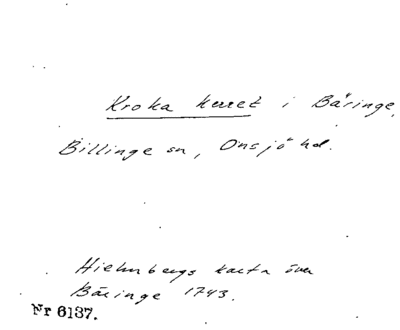 Kroka kerret i Båringe,
Billinge sn, Onsjö hd.
Hielmbergs karta över
Båringe 1743.
Nr 6137.